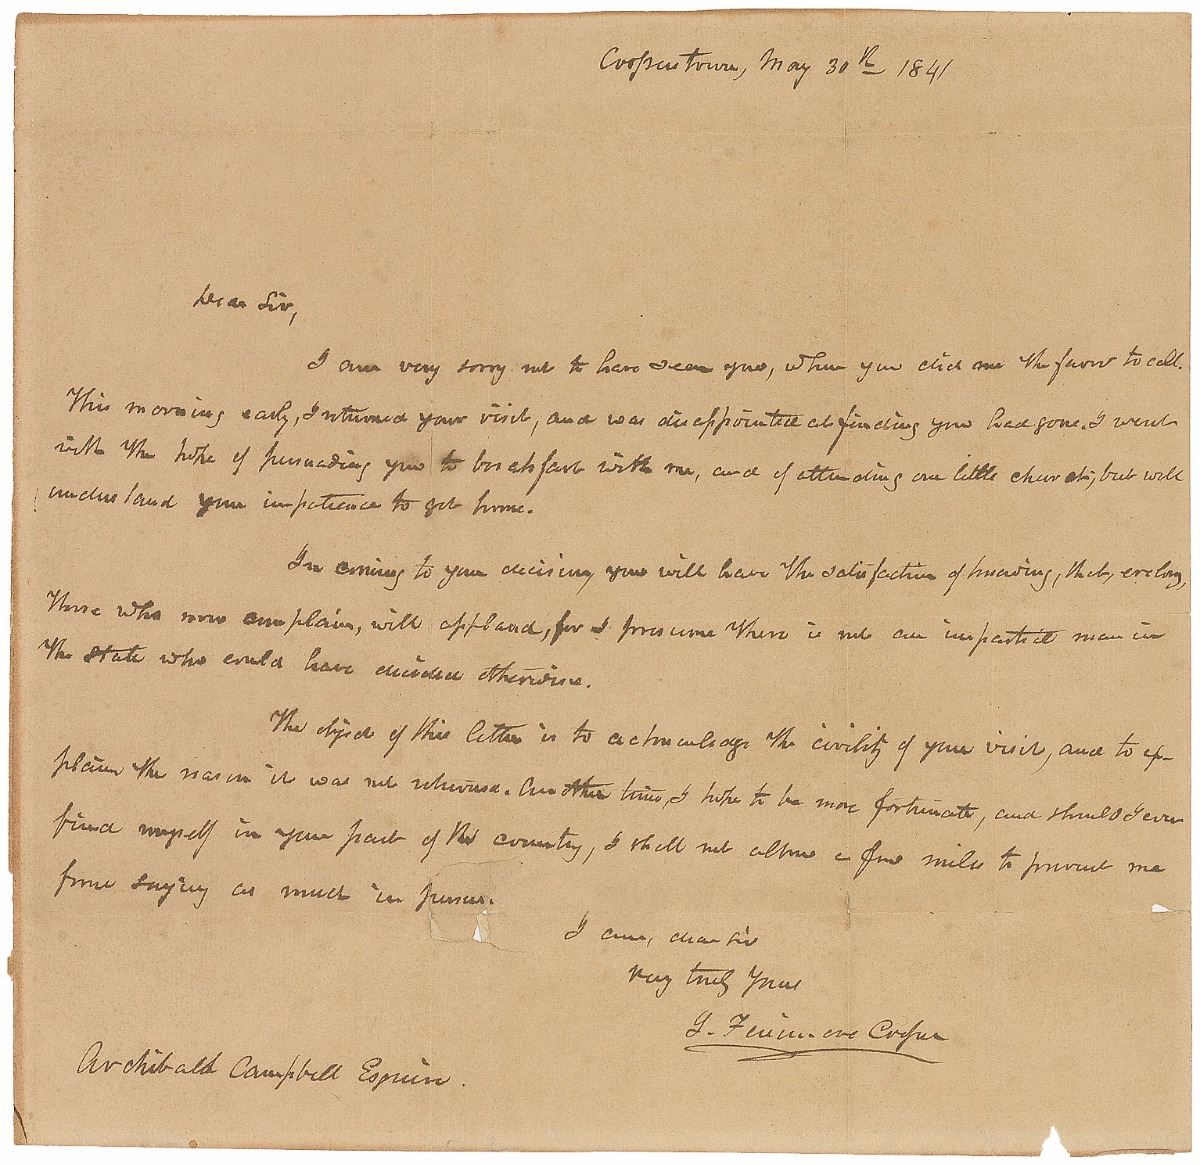 Cooperstown, May 30th 1841
Dear Sir,
I am very sorry not to have seen you, when you did me the favor to call.
This morning early, I returned your visit, and was disappointed at finding you had gone. I went
with the hope of persuading you to breakfast with me, and of attending our little church, but will
understand your impatience to get home.
In coming to your decision, you will have the satisfaction of knowing, that, ere long,
those who now complain, will applaud, for I presume there is not an impartial man in
the state who could have decided otherwise.
The object of this letter is to acknowledge the civility of your visit, and to ex-
plain the reason it was not returned. Another time, I hope to be more fortunate, and should I ever
find myself in your part of the country, I shall not allow a few miles to prevent me
from saying as much in person.
I am, dear Sir
Very truly Yours
J. Fenimore Cooper
Archibald Campbell Esquire.